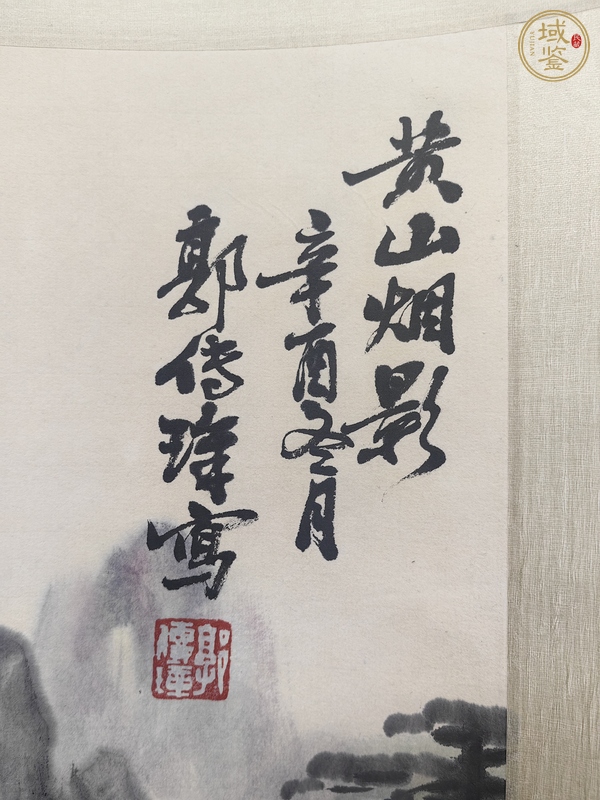 黄山烟影
辛酉冬月
郭传璋写
郭傳璋
域鉴
YUJIAN